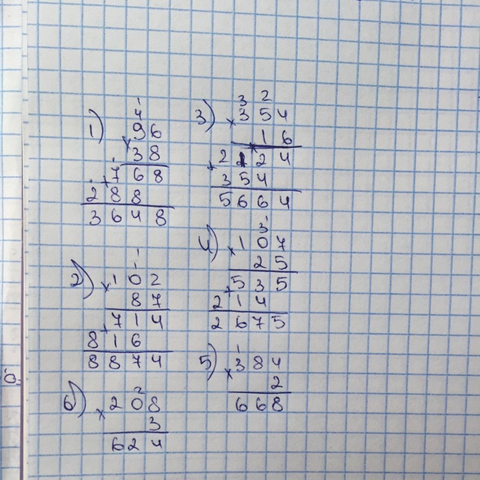 1)
1
4
96
× 38
1
+ 768
288
3648
2)
1
1
× 102
87
+ 714
816
8874
6)
2
× 208
3
624
3)
3 2
× 354
16
+ 2124
354
5664
4)
1
3
× 107
25
+ 535
214
2675
5)
1
× 384
2
668